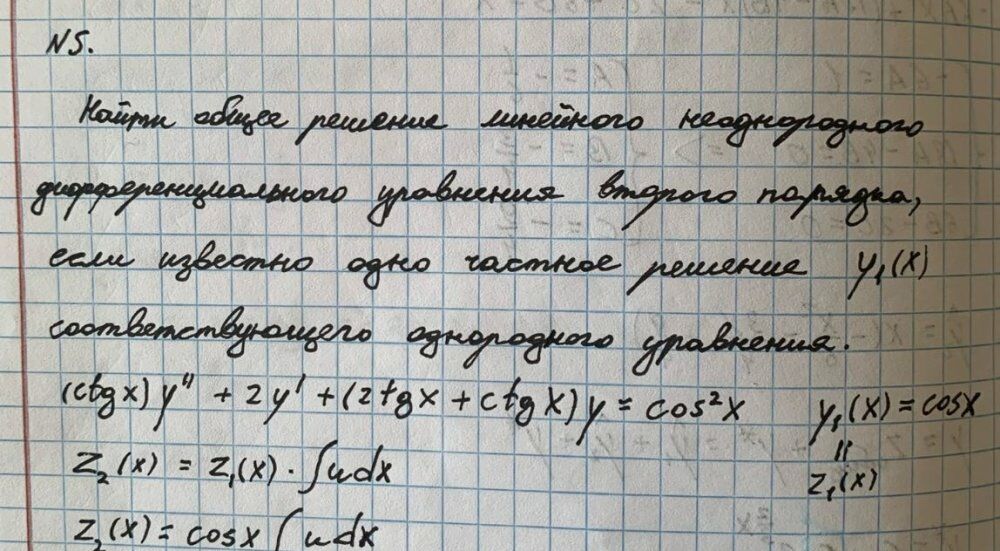 N5.
Найти общее решение линейного неоднородного
дифференциального уравнения второго порядка,
если известно одно частное решение y₁(x)
соответствующего однородного уравнения.
(ctgx)y" + 2y' + (2tgx + ctgx)y = cos²x y₁(x) = cosx
||
z₂(x) = z₁(x) · ∫udx z₁(x)
z₂(x) = cosx ∫udx